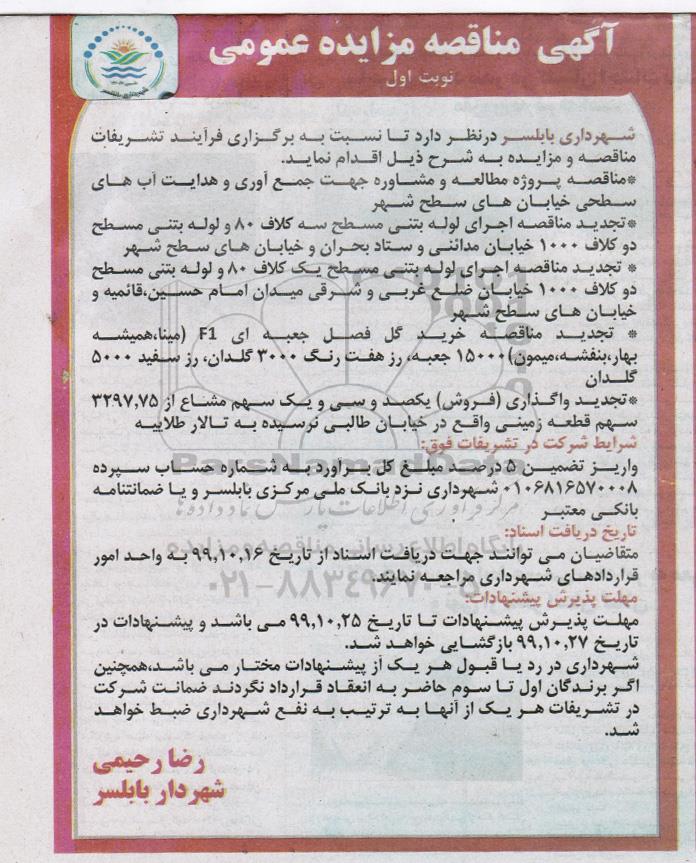 آگهی مناقصه مزایده عمومی
نوبت اول
شهرداری بابلسر
شهرداری بابلسر درنظر دارد تا نسبت به برگزاری فرآیند تشریفات
مناقصه و مزایده به شرح ذیل اقدام نماید.
*مناقصه پروژه مطالعه و مشاوره جهت جمع آوری و هدایت آب های
سطحی خیابان های سطح شهر
*تجدید مناقصه اجرای لوله بتنی مسطح سه کلاف ۸۰ و لوله بتنی مسطح
دو کلاف ۱۰۰۰ خیابان مدائنی و ستاد بحران و خیابان های سطح شهر
* تجدید مناقصه اجرای لوله بتنی مسطح یک کلاف ۸۰ و لوله بتنی مسطح
دو کلاف ۱۰۰۰ خیابان ضلع غربی و شرقی میدان امام حسین،قائمیه و
خیابان های سطح شهر
* تجدید مناقصه خرید گل فصل جعبه ای F1 (مینا،همیشه
بهار،بنفشه،میمون)۱۵۰۰۰ جعبه، رز هفت رنگ ۳۰۰۰ گلدان، رز سفید ۵۰۰۰
گلدان
*تجدید واگذاری (فروش) یکصد و سی و یک سهم مشاع از ۳۲۹۷,۷۵
سهم قطعه زمینی واقع در خیابان طالبی نرسیده به تالار طلاییه
شرایط شرکت در تشریفات فوق:
واریز تضمین ۵ درصد مبلغ کل برآورد به شماره حساب سپرده
۰۱۰۶۸۱۶۵۷۰۰۰۸ شهرداری نزد بانک ملی مرکزی بابلسر و یا ضمانتنامه
بانکی معتبر
تاریخ دریافت اسناد:
متقاضیان می توانند جهت دریافت اسناد از تاریخ ۹۹,۱۰,۱۶ به واحد امور
قراردادهای شهرداری مراجعه نمایند.
مهلت پذیرش پیشنهادات:
مهلت پذیرش پیشنهادات تا تاریخ ۹۹,۱۰,۲۵ می باشد و پیشنهادات در
تاریخ ۹۹,۱۰,۲۷ بازگشایی خواهد شد.
شهرداری در رد یا قبول هر یک از پیشنهادات مختار می باشد،همچنین
اگر برندگان اول تا سوم حاضر به انعقاد قرارداد نگردند ضمانت شرکت
در تشریفات هر یک از آنها به ترتیب به نفع شهرداری ضبط خواهد
شد.
رضا رحیمی
شهردار بابلسر
ParsNamadData
مرکز فرآوری اطلاعات پارس نماد داده ها
پایگاه اطلاع رسانی مناقصه و مزایده